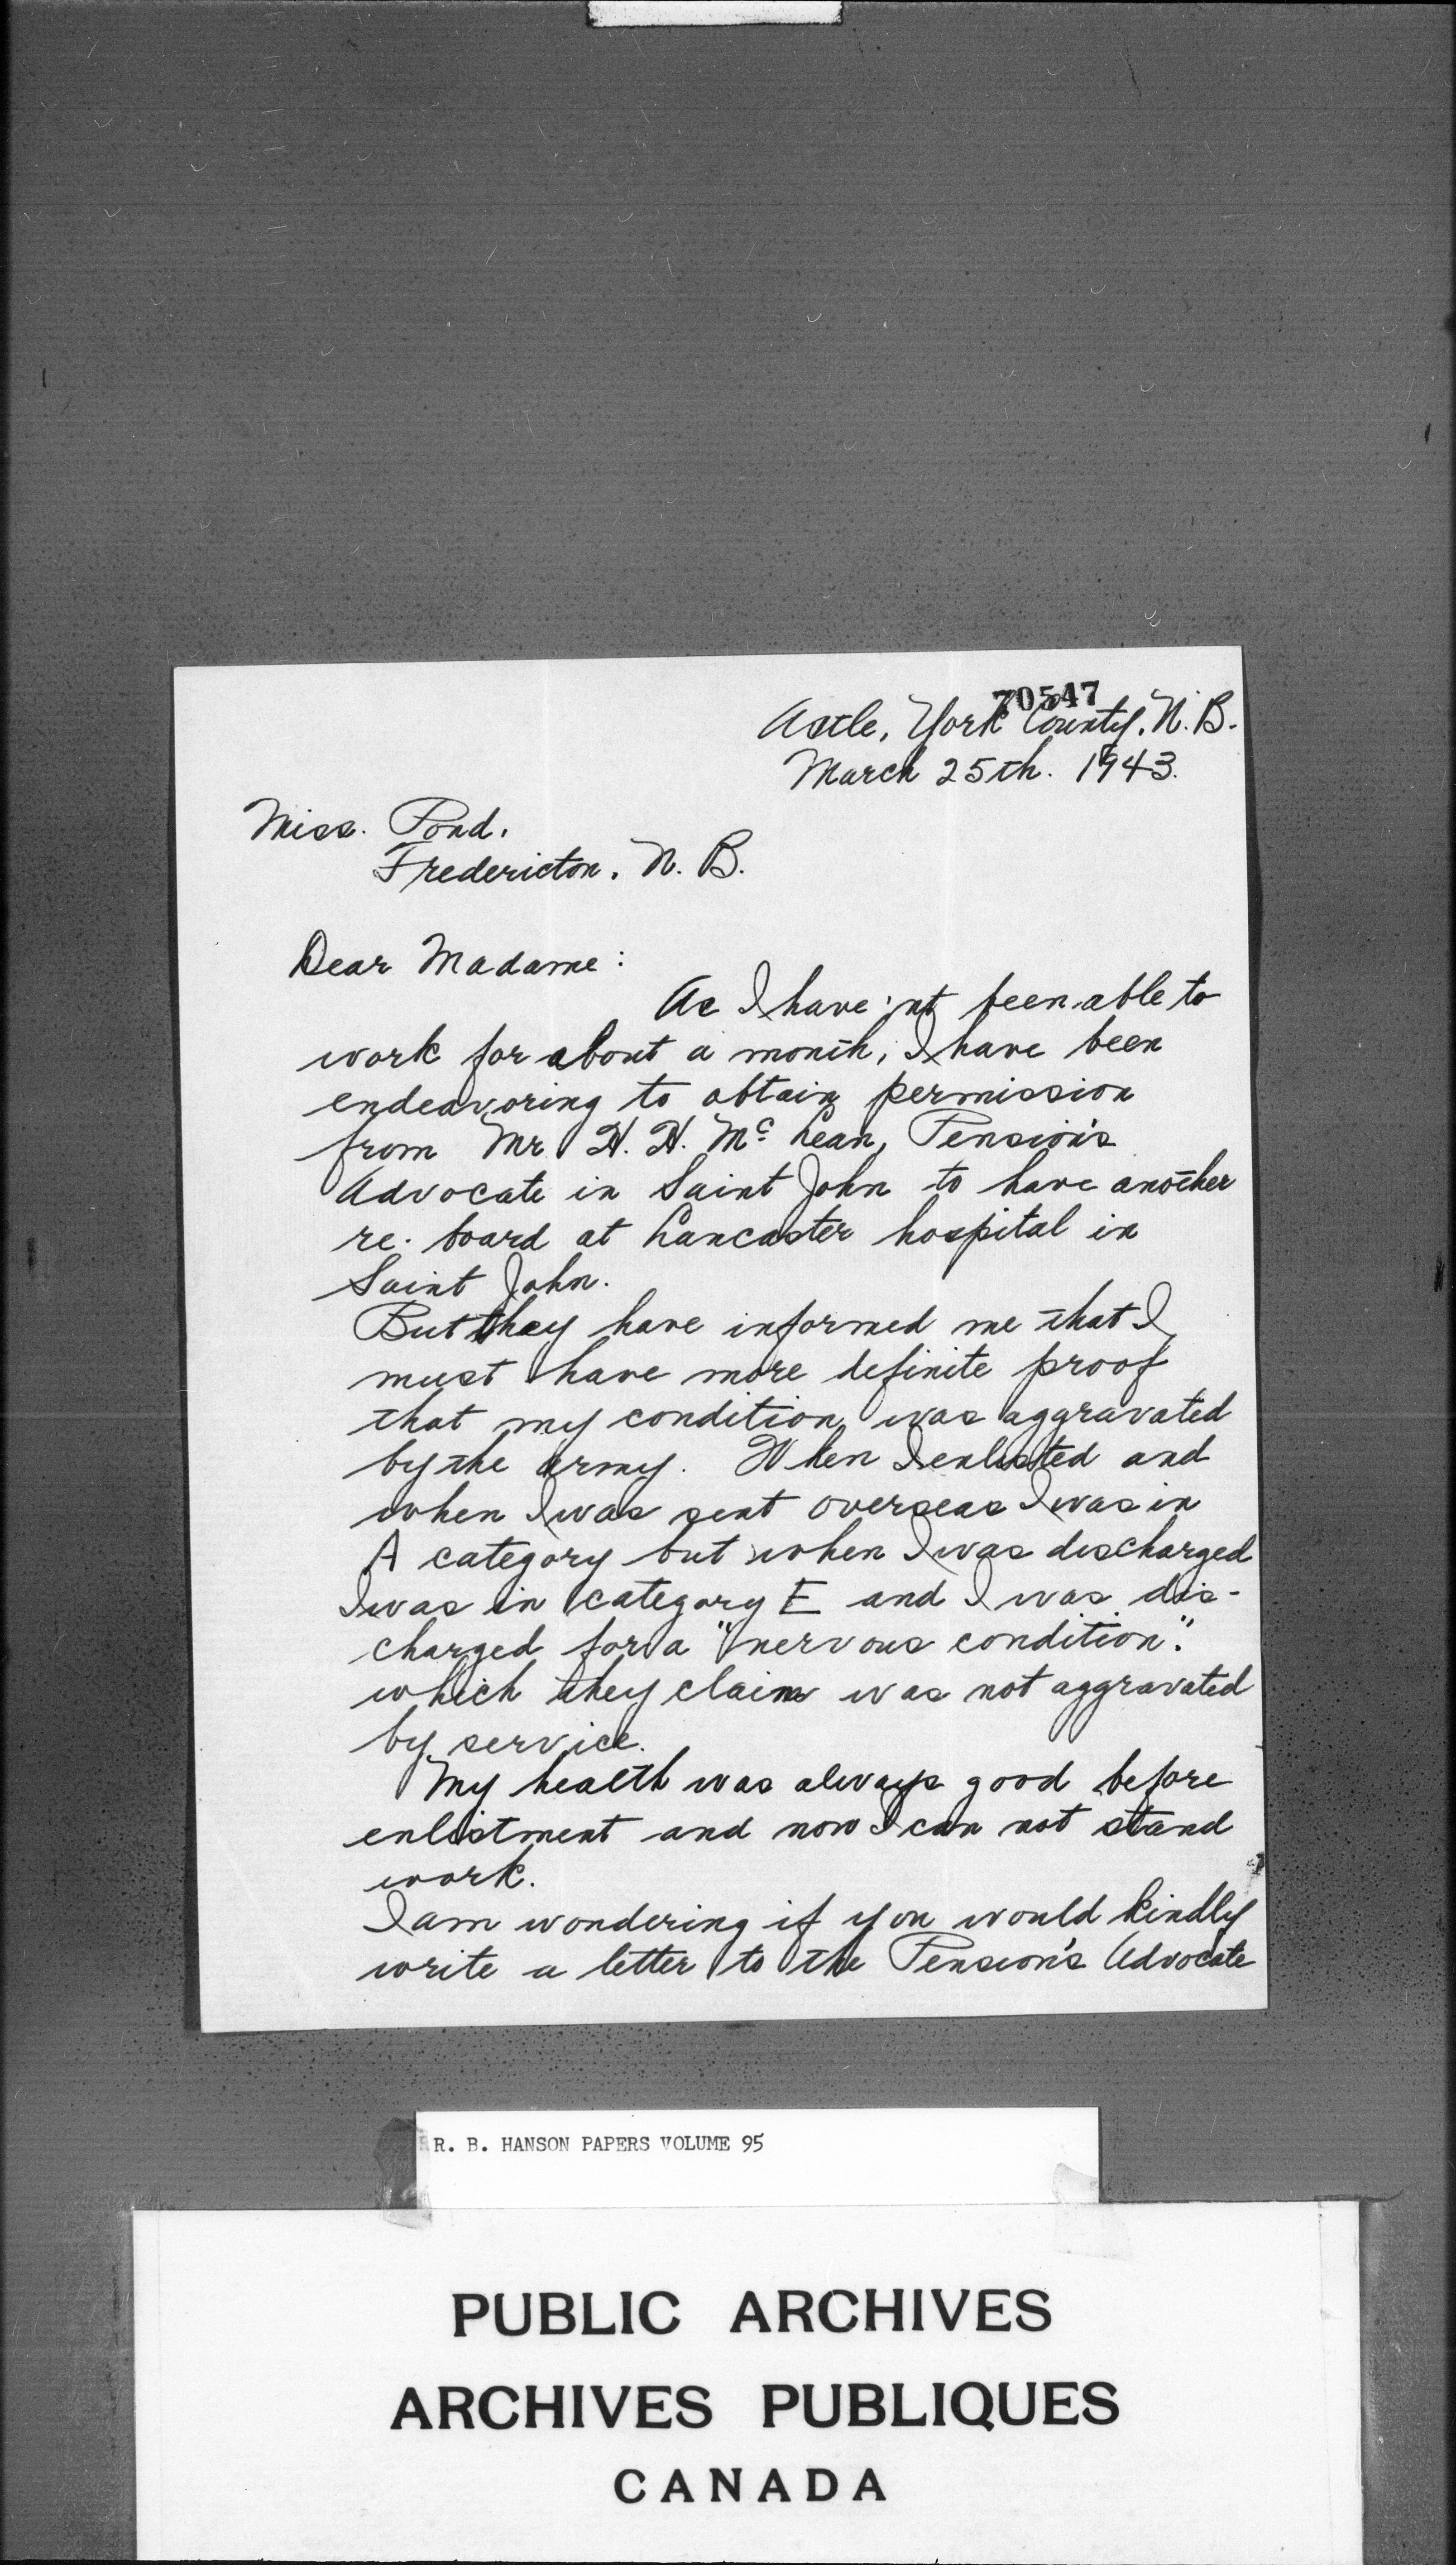 70547
Astle, York County, N. B.
March 25th. 1943.
Miss. Pond.
Fredericton. N. B.
Dear Madame:
As I have'nt been able to
work for about a month, I have been
endeavoring to obtain permission
from Mr H. H. Mc Lean, Pension's
Advocate in Saint John to have another
re-board at Lancaster hospital in
Saint John.
But they have informed me that I
must have more definite proof
that my condition was aggravated
by the army. When I enlisted and
when I was sent overseas I was in
A category but when I was discharged
I was in category E and I was dis-
charged for a "nervous condition".
which they claim was not aggravated
by service.
My health was always good before
enlistment and now I can not stand
work.
I am wondering if you would kindly
write a letter to the Pension's Advocate
R. B. HANSON PAPERS VOLUME 95
PUBLIC ARCHIVES
ARCHIVES PUBLIQUES
CANADA